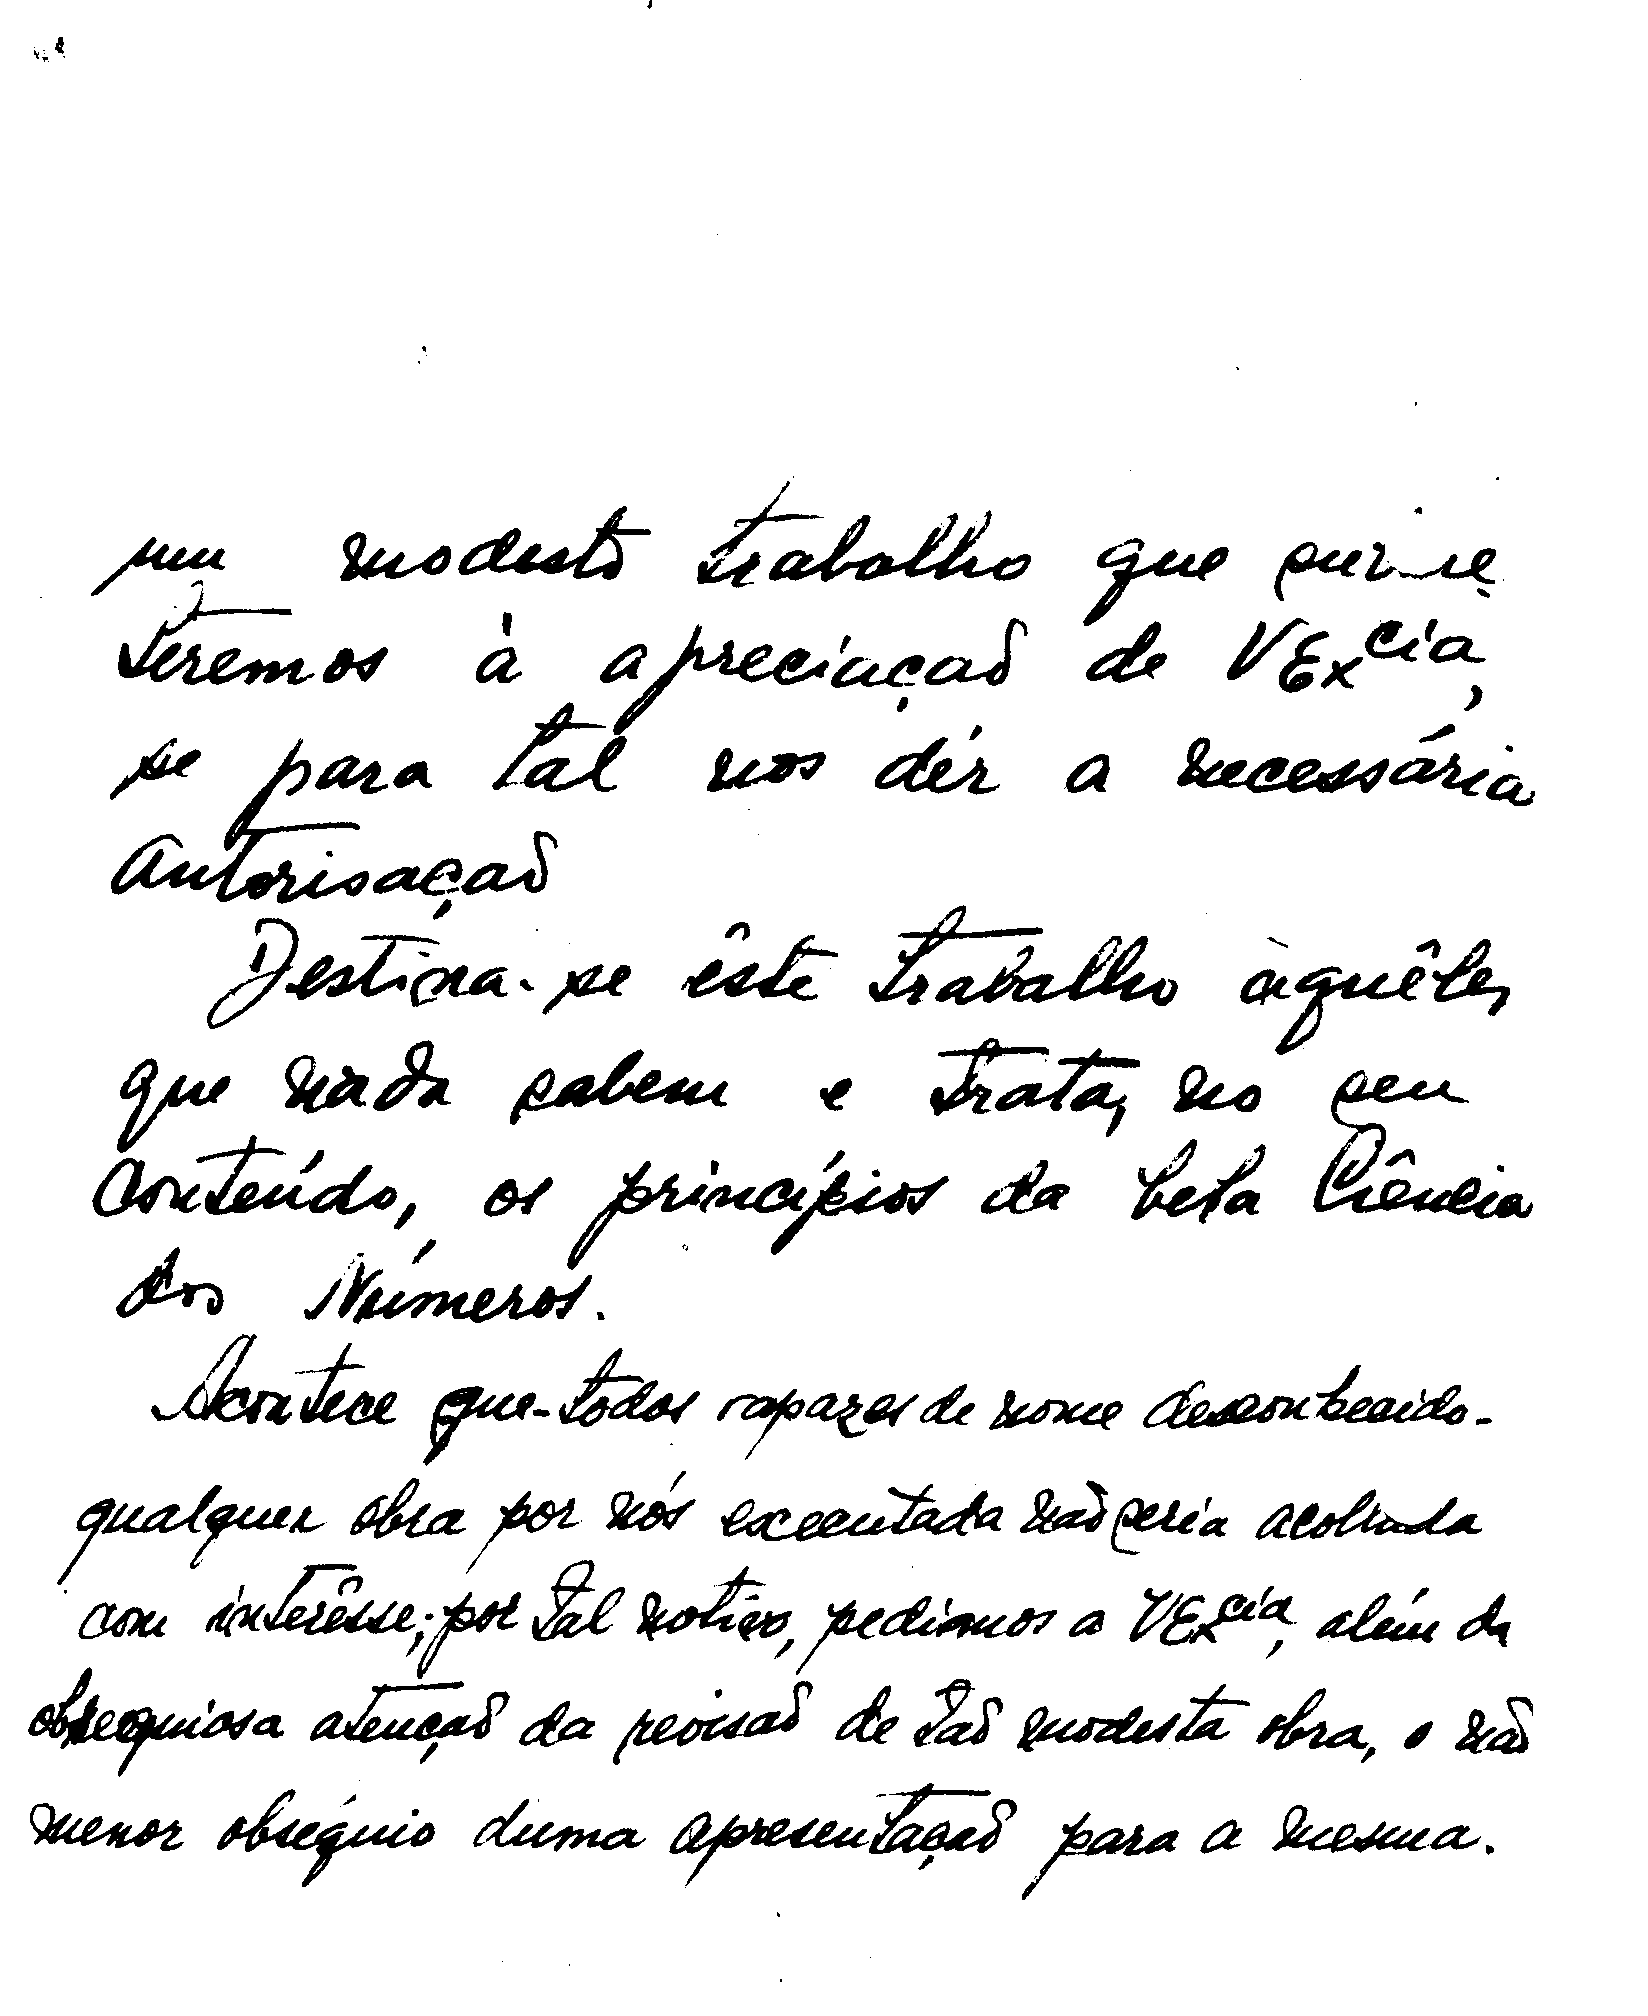 um modesto trabalho que
teremos à apreciação de VEx^cia,
se para tal nos dér a necessária
autorisação
Destina-se êste trabalho àquêles
que nada sabem e trata, no seu
conteúdo, os princípios da bela Ciência
dos Números.
Acontece que-todos rapazes de nome desconhecido-
qualquer obra por nós executada não seria acolhida
com interêsse; por tal motivo, pediamos a VEx^cia, além da
obsequiosa atenção da revisão de tão modesta obra, o não
menor obséquio duma apresentação para a mesma.